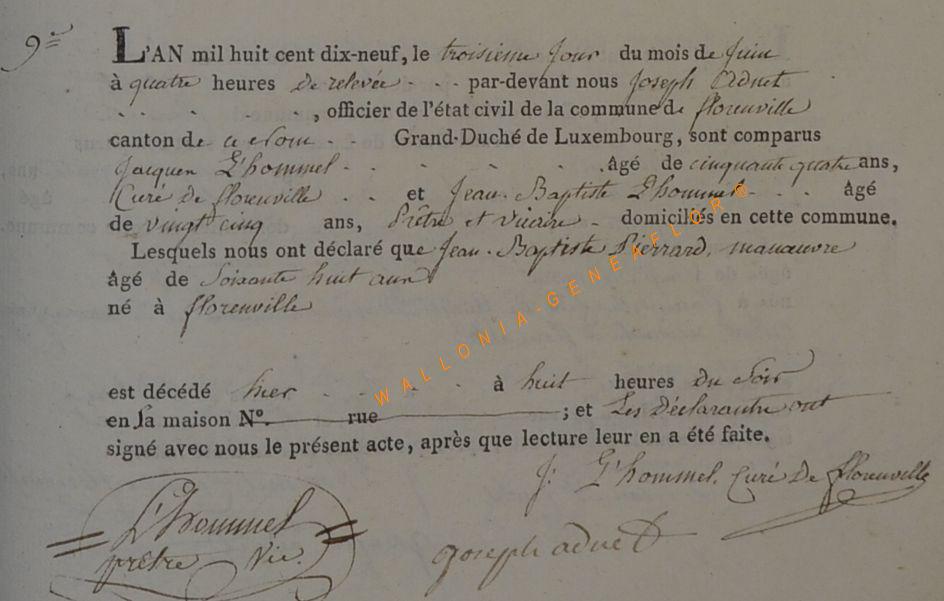 9e
L'AN mil huit cent dix-neuf, le troisieme jour du mois de juin
à quatre heures de relevée - - - par-devant nous Joseph Adnet
- - - - , officier de l'état civil de la commune de florenville
canton de ce nom - - Grand-Duché de Luxembourg, sont comparus
Jacques L'hommel - - - - - âgé de cinquante quatre ans,
Curé de florenville - - et Jean-Baptiste L'hommel - - âgé
de vingt cinq ans, Prêtre et vicaire - domiciliés en cette commune.
Lesquels nous ont déclaré que Jean-Baptiste Pierrard, manœuvre
âgé de soixante huit ans
né à florenville
est décédé hier - - - - à huit heures du soir
en sa maison N°. rue ; et Les Déclarants ont
signé avec nous le présent acte, après que lecture leur en a été faite.
J: L'hommel. Curé De florenville
L'hommel
prêtre Vic.
joseph adnet
WALLONIA-GENEAFLOR®